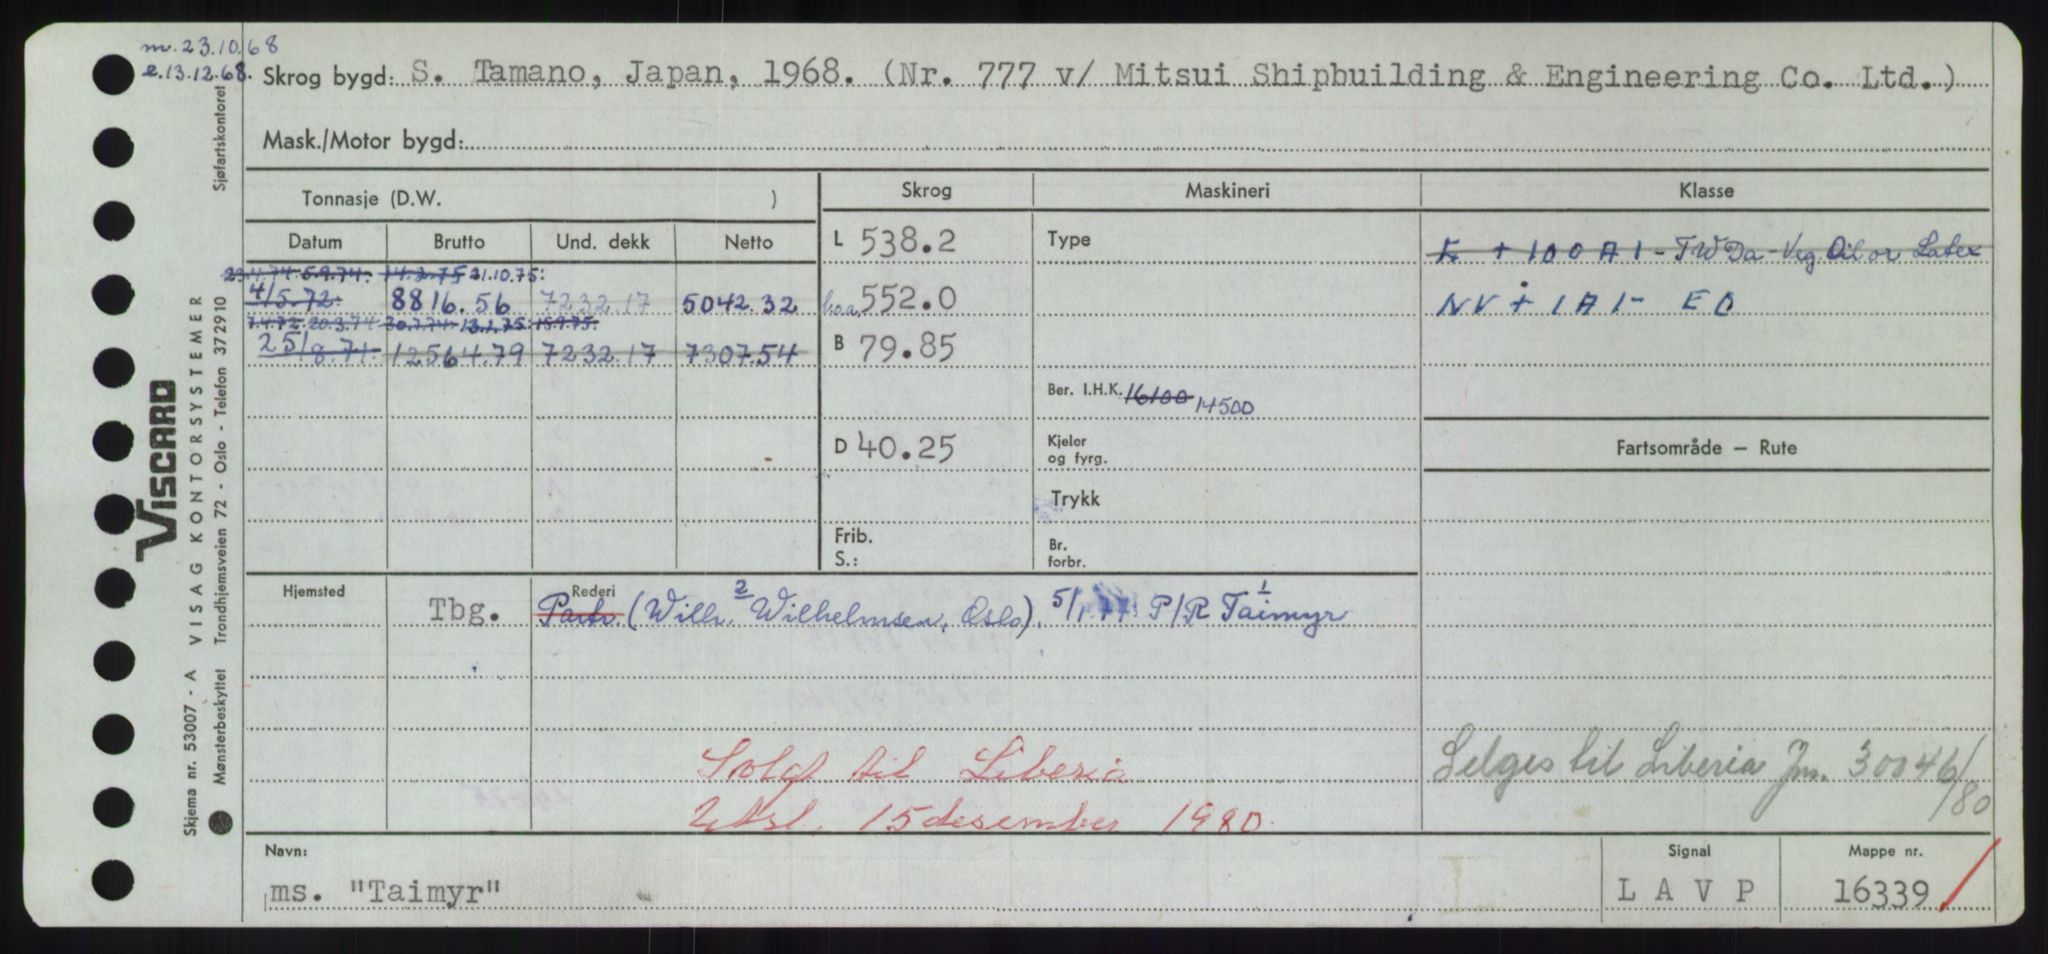 m. 23.10.68
e. 13.12.68.
Skrog bygd: S. Tamano, Japan, 1968. (Nr. 777 v/ Mitsui Shipbuilding & Engineering Co. Ltd.)
Mask./Motor bygd:
Tonnasje (D.W. )
Skrog
Maskineri
Klasse
Datum Brutto Und. dekk Netto
L 538.2
Type
+ 100 A 1 - TWDa - Veg. Oil or Latex
5.9.74. 14.2.75 21.10.75.
4/5.72. 8816.56 7232.17 5042.32
b.o.a. 552.0
NV + 1A1- EO
7.4.72. 20.3.74 30.7.74. 13.1.75. 15.9.75.
25/8.71. 12564.79 7232.17 7307.54
B 79.85
Ber. I.H.K. 16100 14500
D 40.25
Kjeler og fyrg.
Fartsområde — Rute
Trykk
Frib.
S.:
Br. forbr.
Hjemsted
Rederi
Tbg.
Partr. (Wilh. 2 Wilhelmsen, Oslo). 5/1.77. P/R Taimyr 1
Solgt til Liberia
Utsl. 15 desember 1980.
Selges til Liberia Jnr. 30046/80
Navn:
ms. "Taimyr"
Signal
L A V P
Mappe nr.
16339
Sjøfartskontoret
VISCARD
VISAG KONTORSYSTEMER
Trondhjemsveien 72 - Oslo - Telefon 372910
Skjema nr. 53007 - A
Mønsterbeskyttet